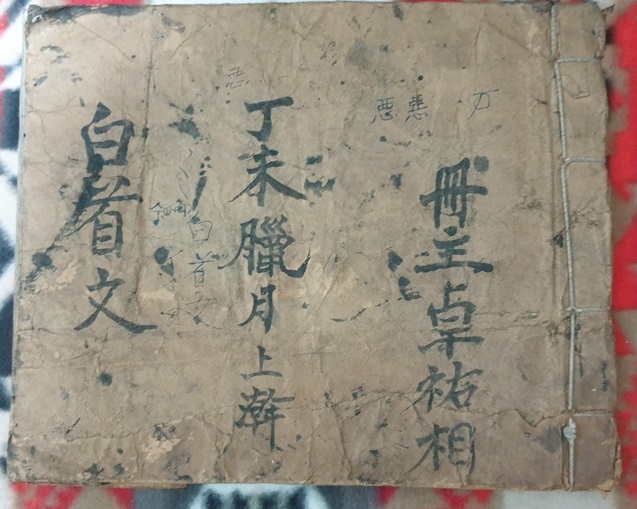 冊主卓祐相
丁未臘月上澣
白首文
白首文
悪
悪